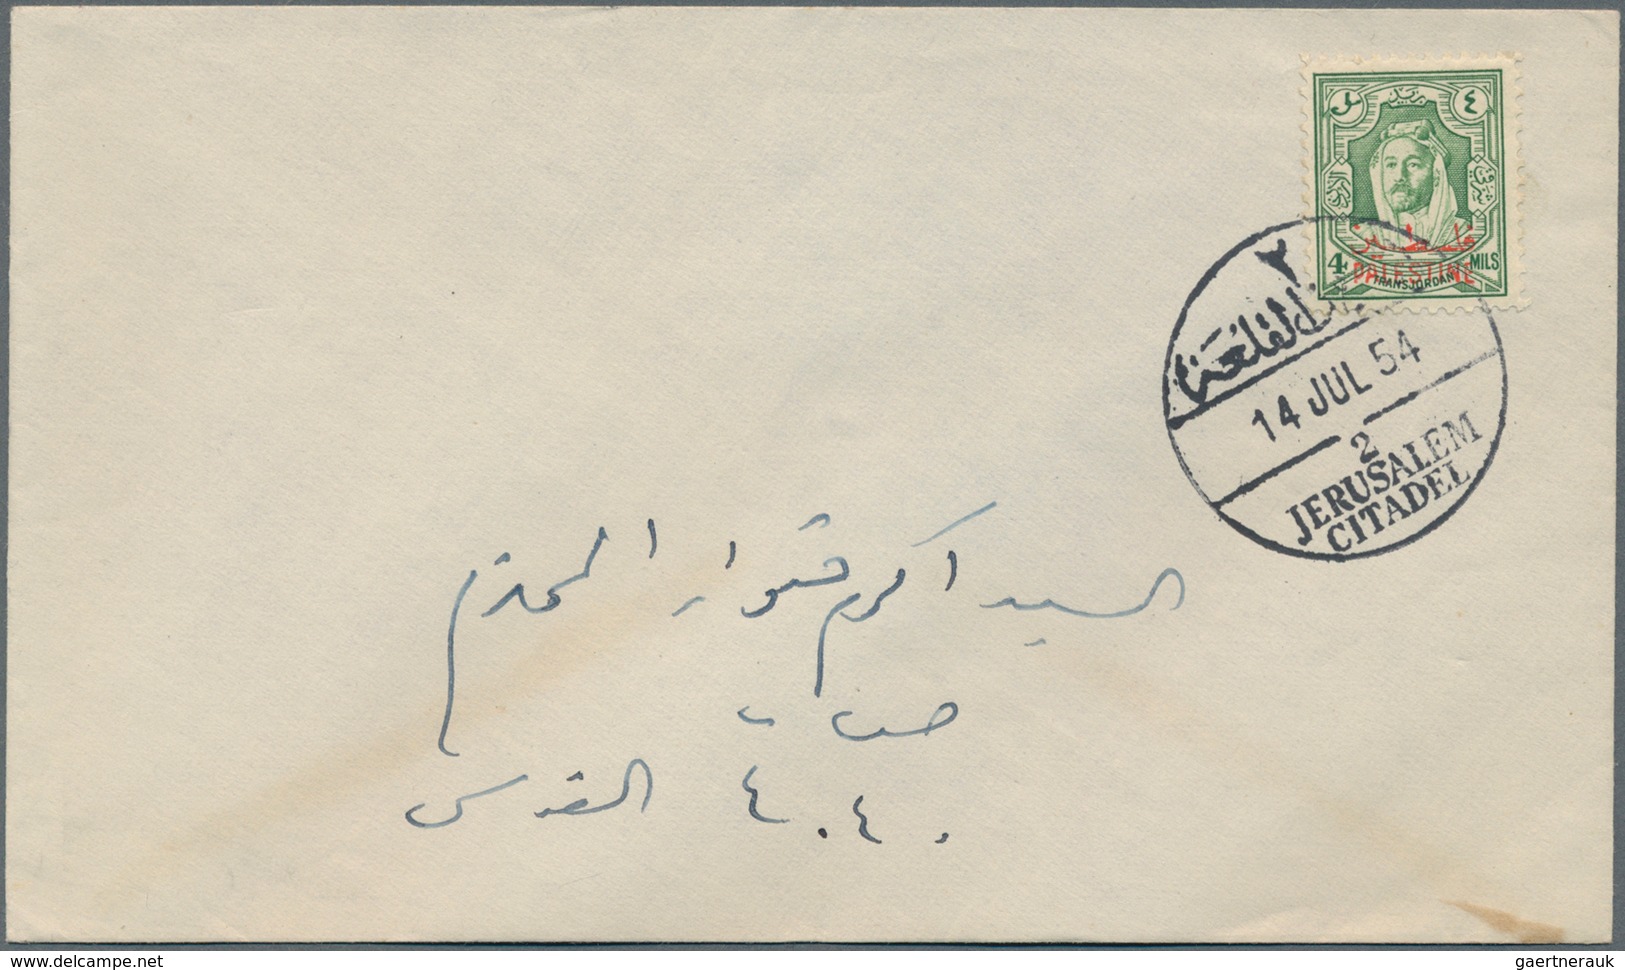 بريد
٤
شرقي
فلسطين
PALESTINE
4 MILS
TRANSJORDAN
٢
القلعة
14 JUL 54
2
JERUSALEM
CITADEL
السيد اكرم المحترم
ص ب
القدس
www.delcampe.net
gaertnerauk